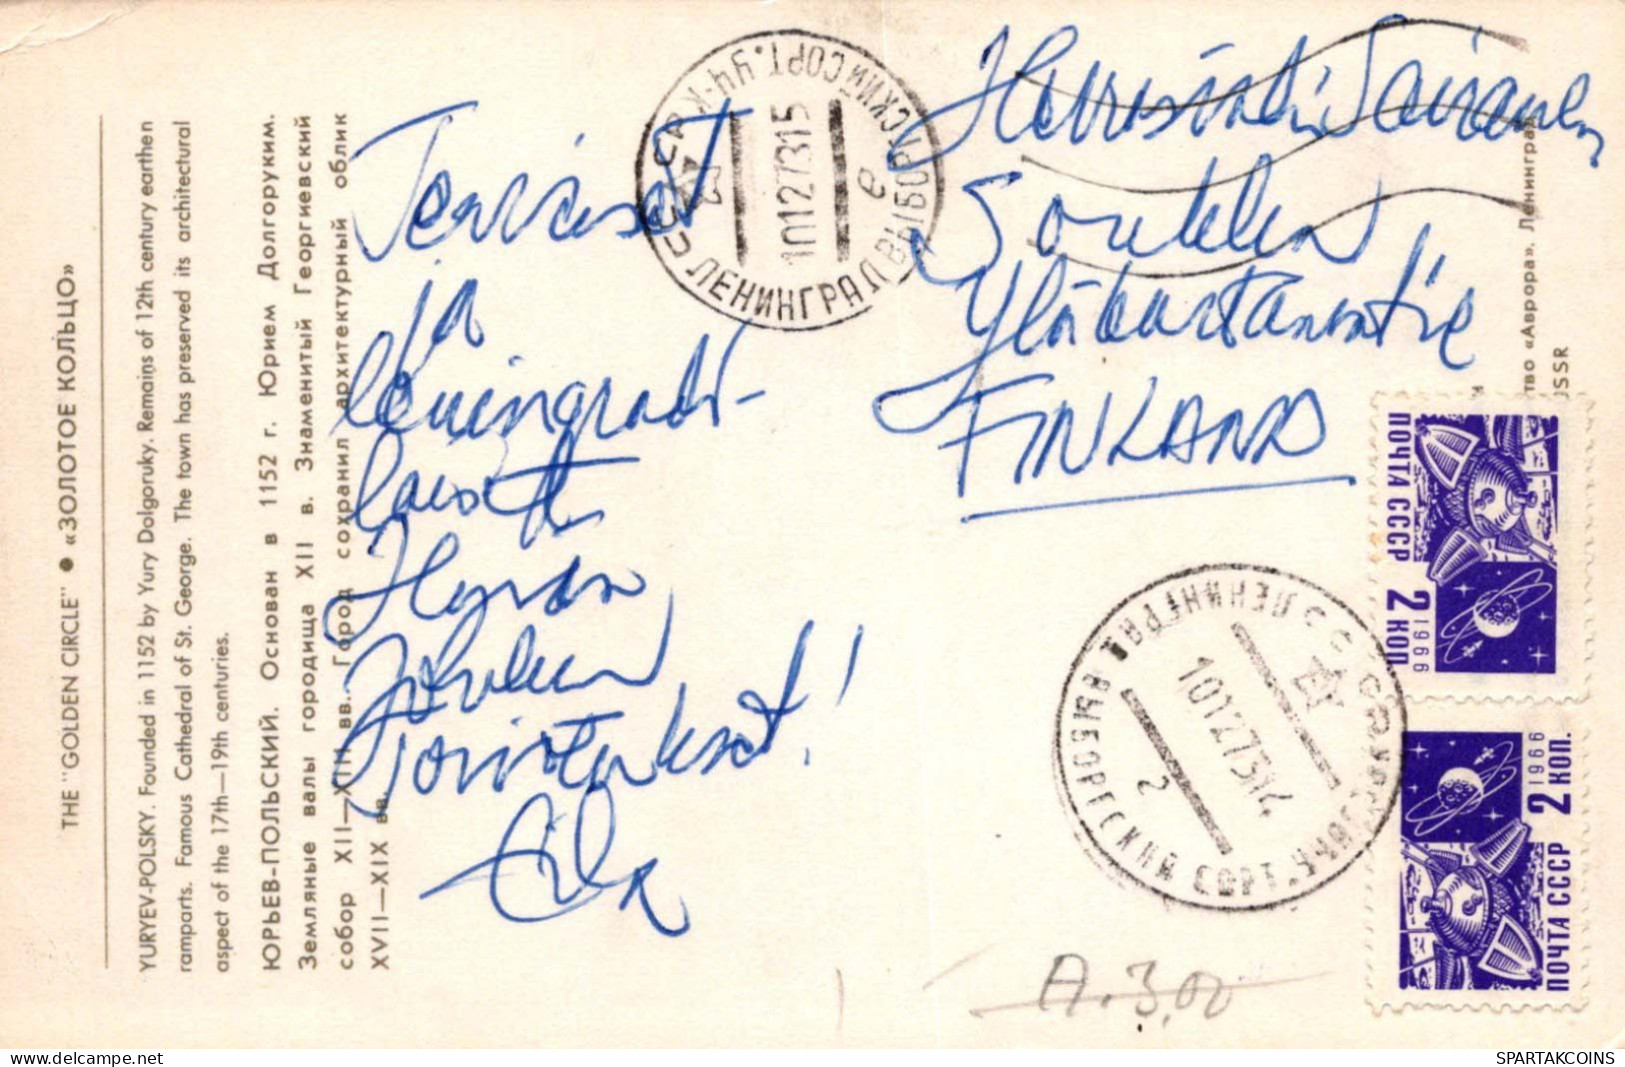 THE "GOLDEN CIRCLE" ● «ЗОЛОТОЕ КОЛЬЦО»
YURYEV-POLSKY. Founded in 1152 by Yury Dolgoruky. Remains of 12th century earthen
ramparts. Famous Cathedral of St. George. The town has preserved its architectural
aspect of the 17th—19th centuries.
ЮРЬЕВ-ПОЛЬСКИЙ. Основан в 1152 г. Юрием Долгоруким.
Земляные валы городища XII в. Знаменитый Георгиевский
собор XII—XIII вв. Город сохранил архитектурный облик
XVII—XIX вв.
ja
Leningradi-
Hyvän
Joulun
toivotukset!
FINLAND
СССР ЛЕНИНГРАД
ВЫБОРГСКИЙ СОРТ. УЧ-К
10127315
е
«Аврора». Ленинград
USSR
ПОЧТА СССР
2 КОП.
1966
ЛЕНИНГРАД
ВЫБОРГСКИЙ СОРТ.
2
1966
2 КОП.
ПОЧТА СССР
A.3,00
SPARTAKCOINS
www.delcampe.net